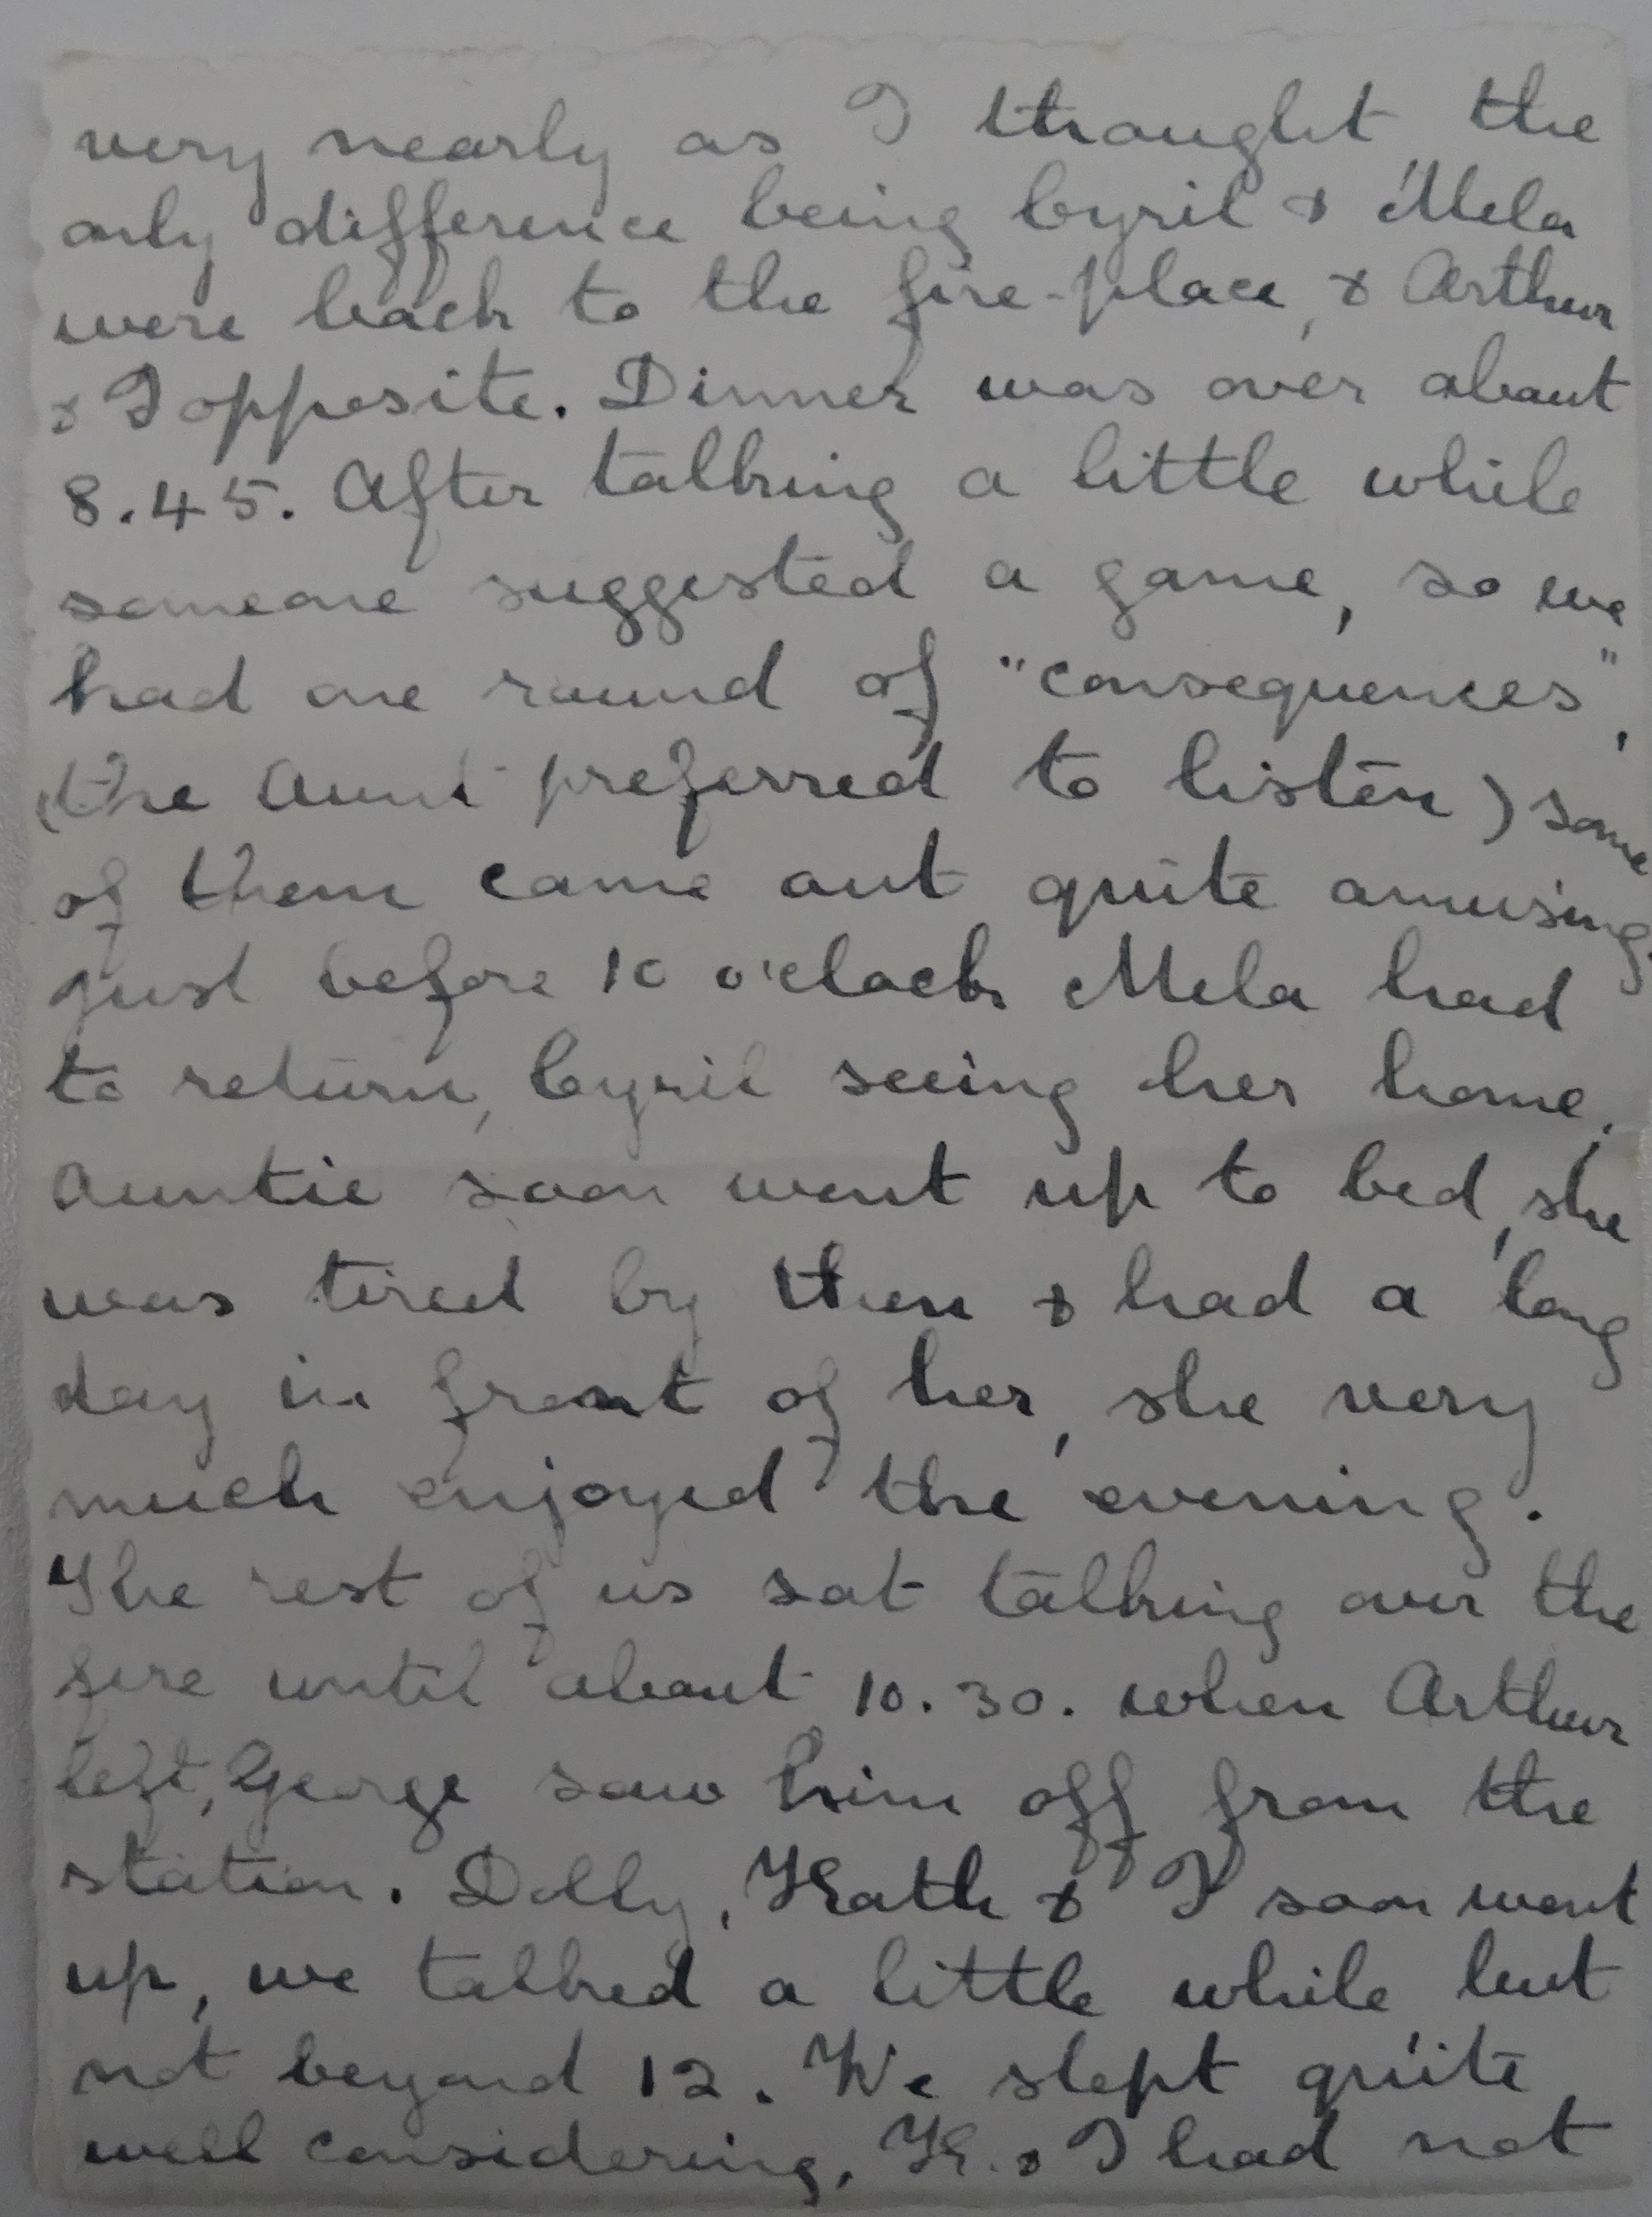 very nearly as I thought, the
only difference being Cyril & Mela
were back to the fire-place, & Arthur
& I opposite. Dinner was over about
8.45. After talking a little while
someone suggested a game, so we
had one round of "consequences",
(the Aunt preferred to listen) some
of them came out quite amusing.
Just before 10 o'clock Mela had
to return, Cyril seeing her home.
Auntie soon went up to bed, she
was tired by then & had a long
day in front of her, she very
much enjoyed the evening.
The rest of us sat talking over the
fire until about 10.30. when Arthur
left, George saw him off from the
station. Dolly, Kath & I soon went
up, we talked a little while but
not beyond 12. We slept quite
well considering, K. & I had not